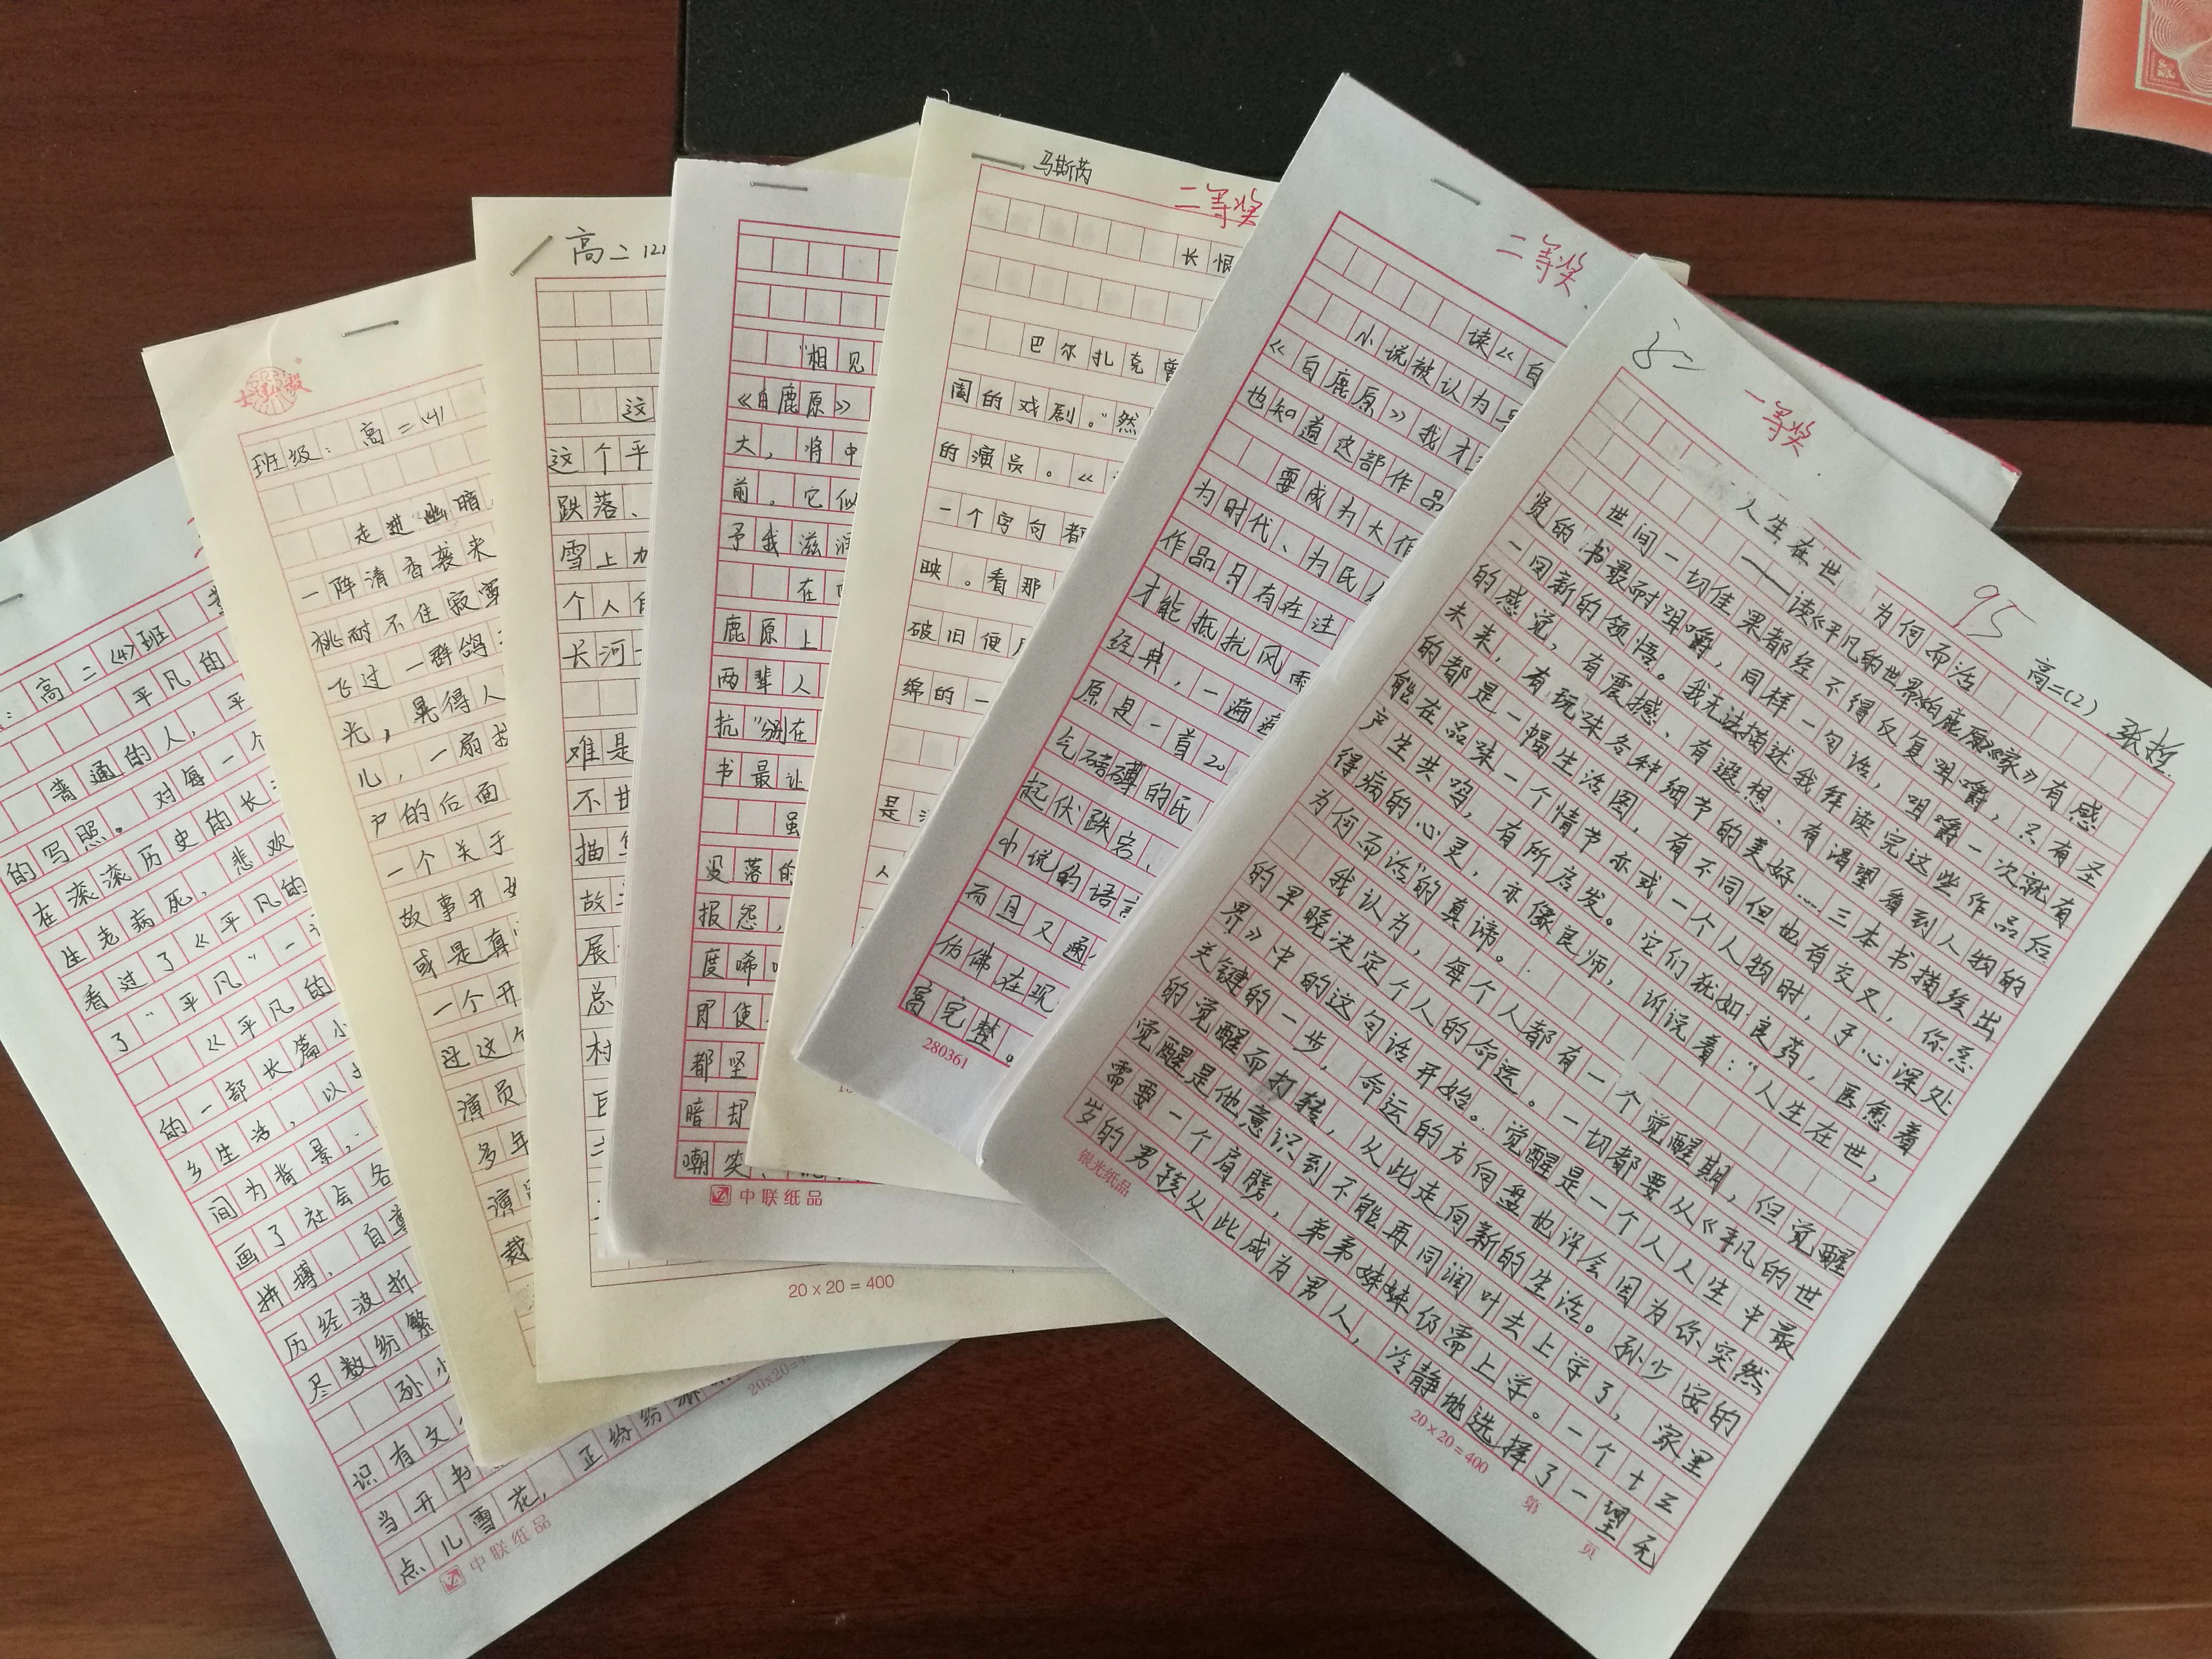 ：高二⑷班
平凡的
普通的人，平
的写照。对每一个
在滚滚历史的长
生老病死，悲欢
看过了《平凡的
了"平凡"一
《平凡的
的一部长篇小
乡生活，以
间为背景，
画了社会各
拼搏、自尊
历经波折
尽数纷繁
孙少
识有文
当开书
点儿雪花，正纷纷
中联纸品
班级：高二⑷
走进幽暗
一阵清香袭来
桃耐不住寂寞
飞过一群鸽
光，晃得人
儿，一扇
户的后面
一个关于
故事开
或是有
一个开
过这个
演员
多年
演
裁
高二⑵
这
这个平
跌落、
雪上加
个人自
长河
难是
不甘
描
故
展
总
村
20×20＝400
"相见
《白鹿原》
大，将中
前。它似
予我滋润
在
鹿原上
两辈人
抗"别在
书最让
虽
没落的
报怨，
度唏
即使
都坚
暗却
嘲笑、
中联纸品
马斯芮
二等奖
长恨
巴尔扎克曾
阁的戏剧。"然
的演员。《
一个字句都
映。看那
破旧便
绵的一
是
人
二等奖
读《白
小说被认为
《白鹿原》我才
也知道这部作品
要成为大作
为时代、为民
作品只有在注
才能抵抗风雨
经典，一遍
原是一首20
气磅礴的民
起伏跌宕、
小说的语言
而且又通
仿佛在现
高完整。
280361
一等奖
95
人生在世 为何而活
——读《平凡的世界》《白鹿原》《家》有感
高二(2) 张哲
世间一切佳果都经不得反复咀嚼，只有圣
贤的书最耐咀嚼，同样一句话，咀嚼一次就有
一回新的领悟。我无法描述我拜读完这些作品后
的感觉，有震撼、有遐想、有渴望看到人物的
未来，有玩味各种细节的美好……三本书描绘出
的都是一幅生活图，有不同但也有交叉，你总
能在品味一个情节亦或一个人物时，于心深处
产生共鸣，有所启发。它们犹如良药，医愈着
得病的心灵，亦像良师，诉说着："人生在世，
为何而活"的真谛。
我认为，每个人都有一个觉醒期，但觉醒
的早晚决定个人的命运。一切都要从《平凡的世
界》中的这句话开始。觉醒是一个人人生中最
关键的一步，命运的方向盘也许会因为你突然
的觉醒而打转，从此走向新的生活。孙少安的
觉醒是他意识到不能再同润叶去上学了，家里
需要一个肩膀，弟弟妹妹仍需上学。一个十三
岁的男孩从此成为男人，冷静地选择了一望无
银光纸品
20×20＝400
第 页